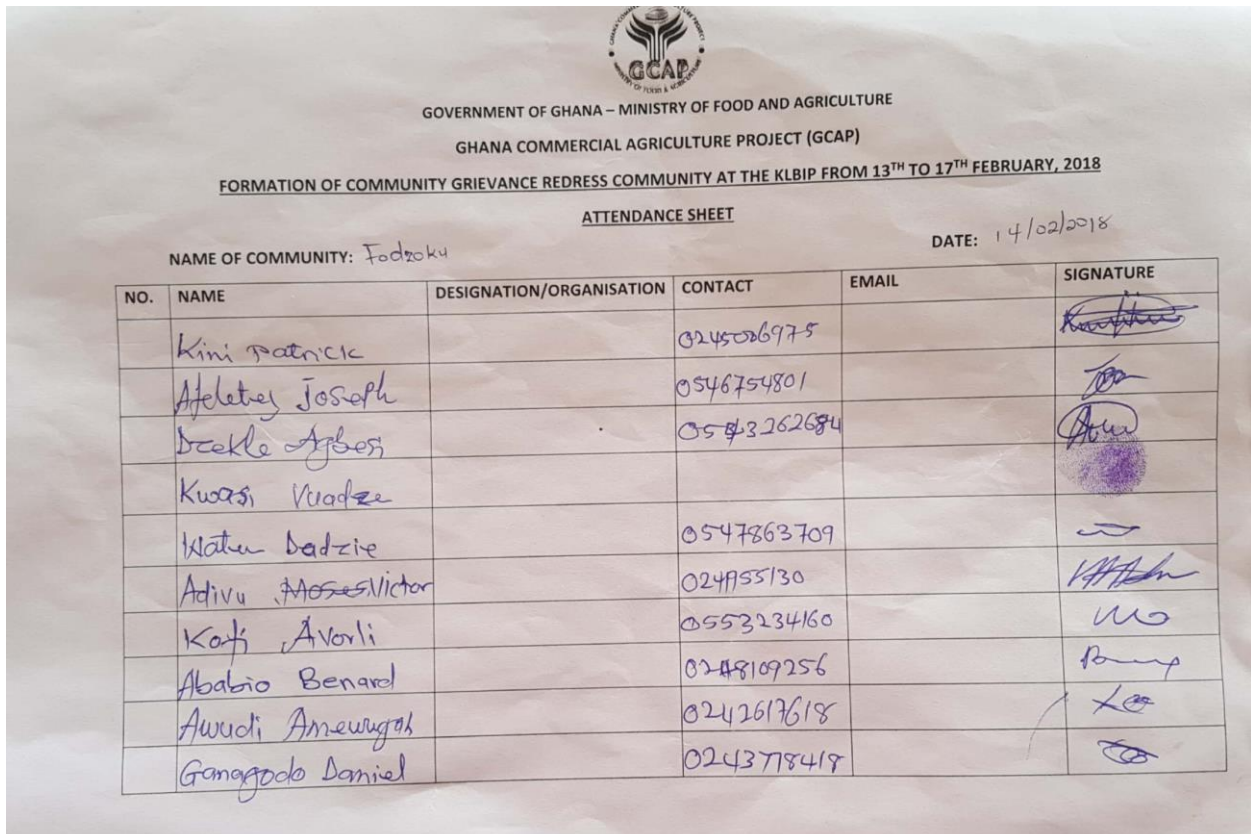 GCAP
GOVERNMENT OF GHANA – MINISTRY OF FOOD AND AGRICULTURE
GHANA COMMERCIAL AGRICULTURE PROJECT (GCAP)
FORMATION OF COMMUNITY GRIEVANCE REDRESS COMMUNITY AT THE KLBIP FROM 13TH TO 17TH FEBRUARY, 2018
ATTENDANCE SHEET
NAME OF COMMUNITY: Fodzoku DATE: 14/02/2018
NO. NAME DESIGNATION/ORGANISATION CONTACT EMAIL SIGNATURE
Kini Patrick
Joseph 0546754801
Dzekle Agbesi
Kwasi
Dadzie 0547863709
Adivu Victor
Kofi Avorli 0553234160
Ababio Benard
Awudi 0242617618
Daniel